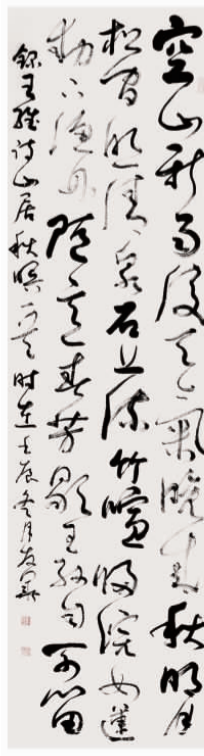 空山新雨後天氣晚来秋明月
松间照清泉石上流竹喧歸浣女蓮
動下漁舟随意春芳歇王孙自可留
録王維诗山居秋暝一首时在壬辰冬月